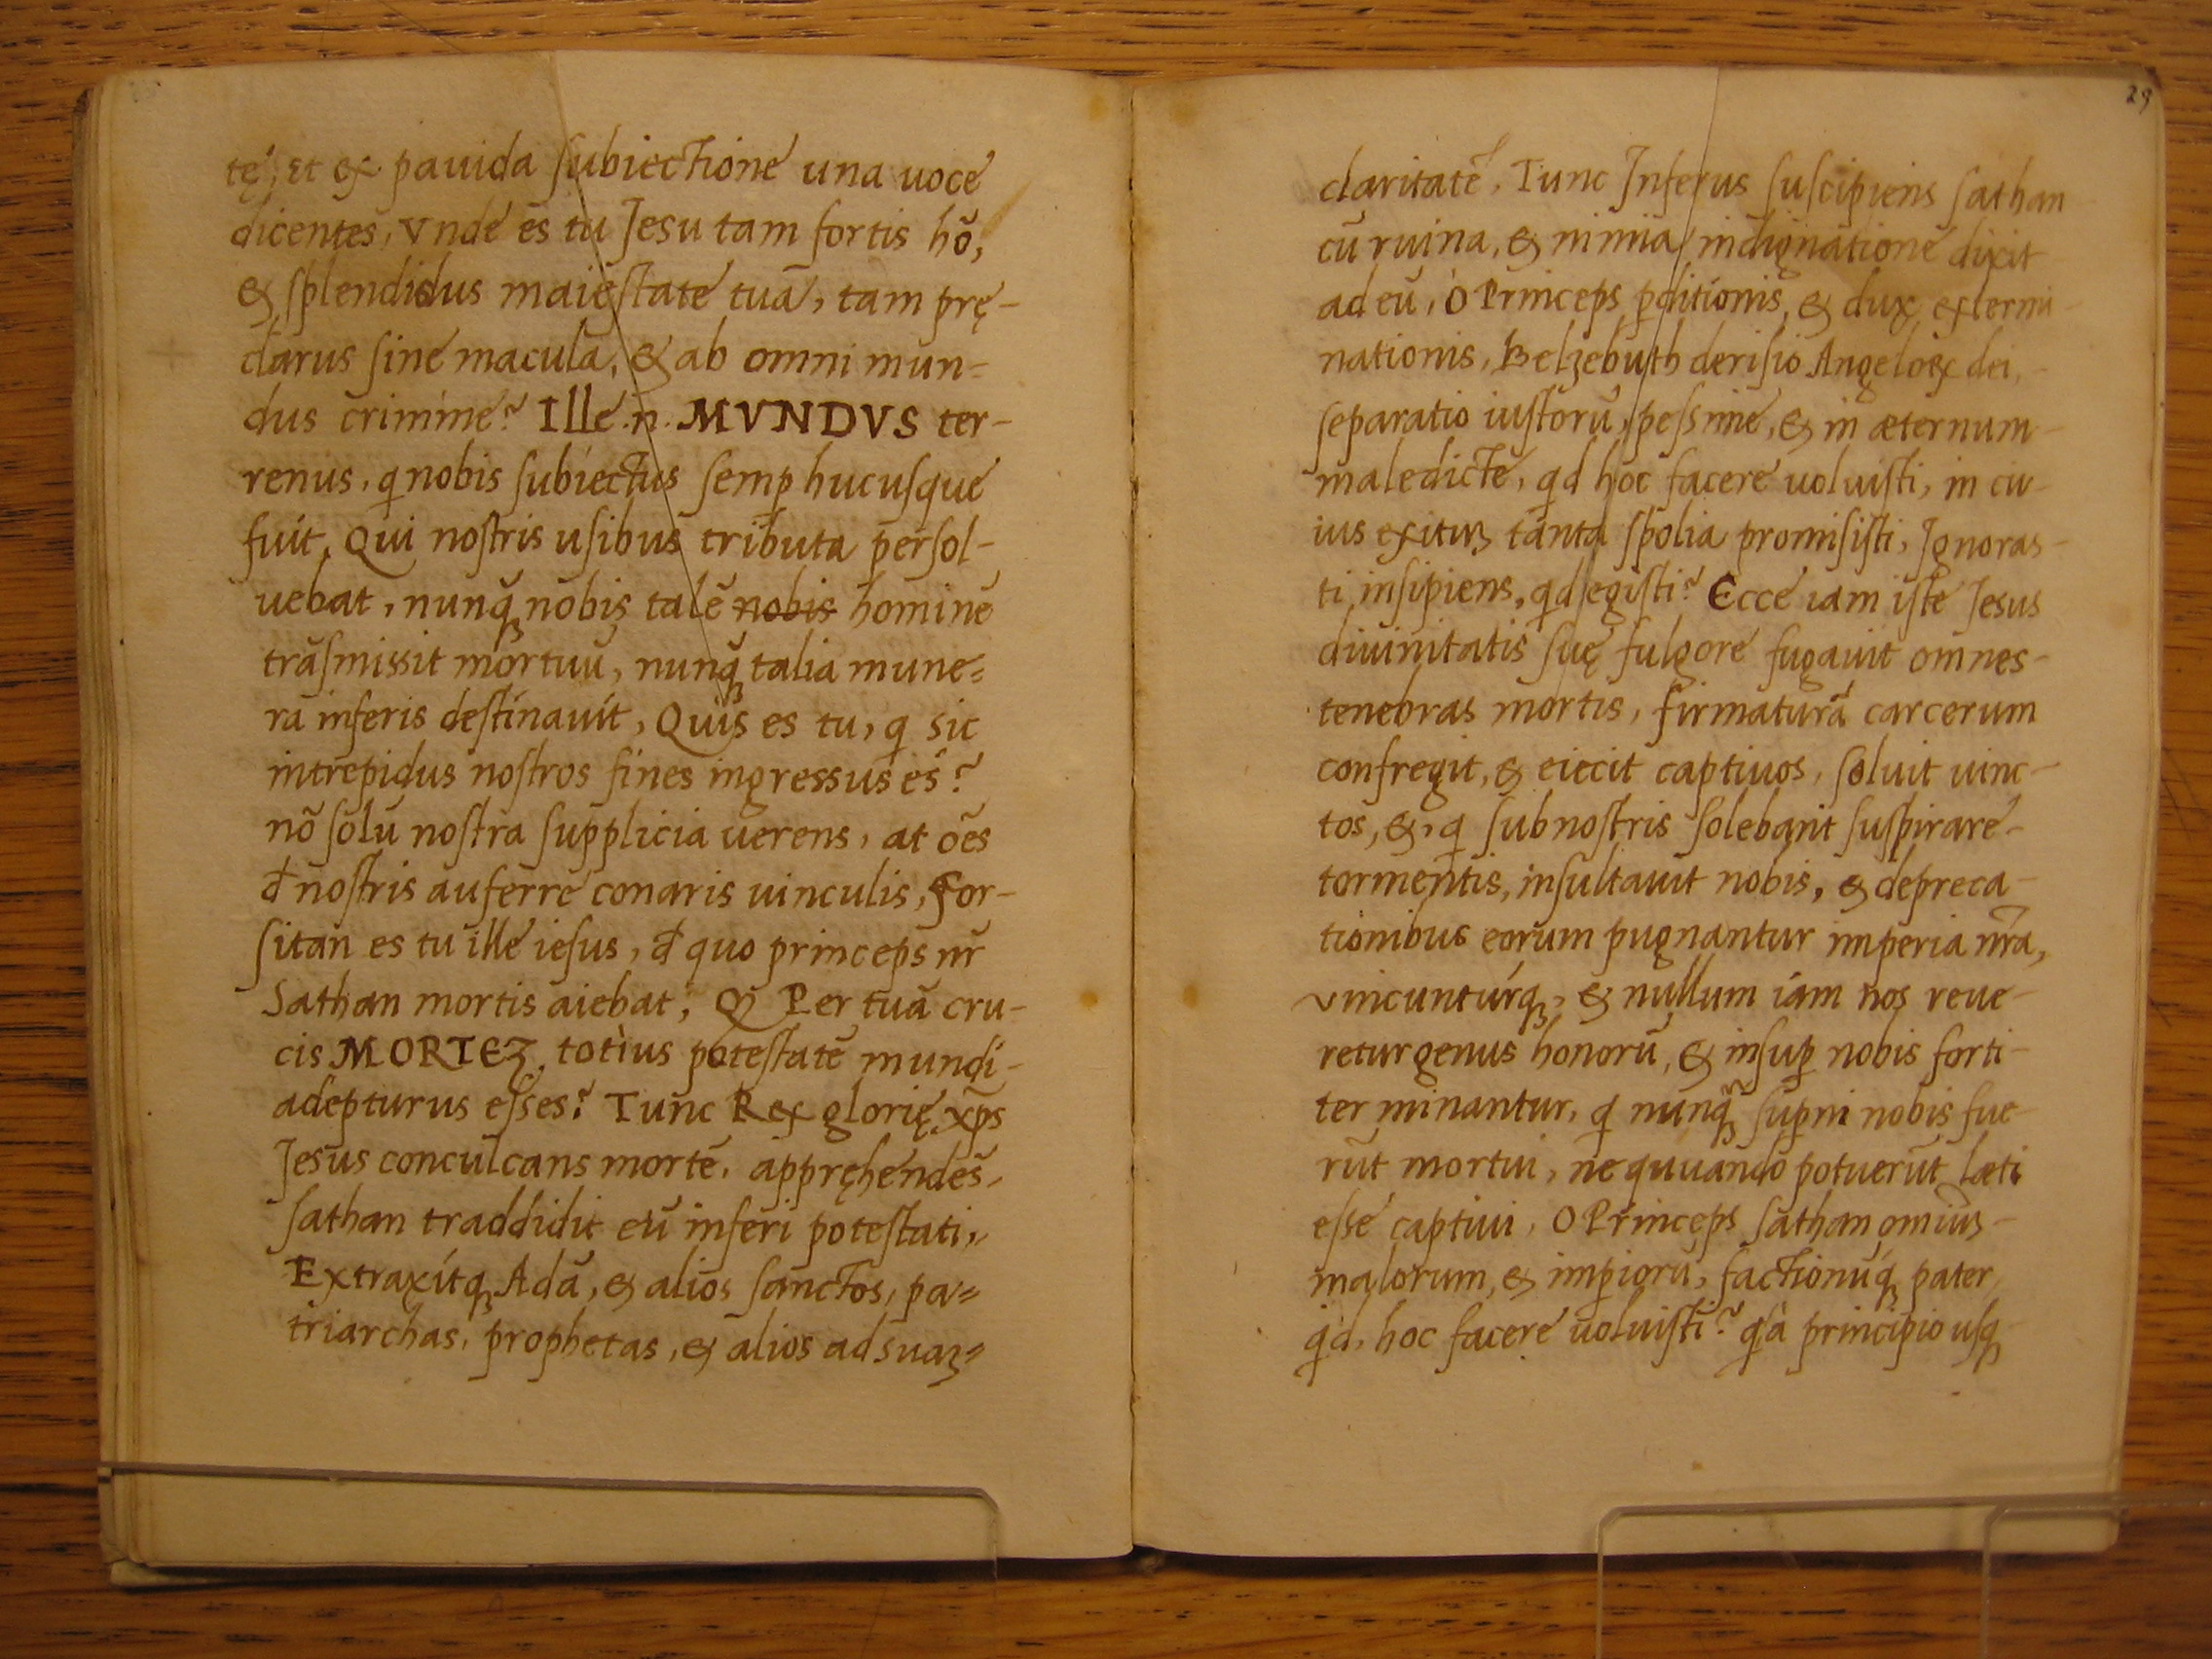 tę, et ex pauida ſubiectione una uoce
dicentes, vnde es tu Jesu tam fortis hõ,
& ſplendidus maieſtate tuã, tam prę-
clarus ſine macula, & ab omni mun-
dus crimine? Ille .n. MVNDVS ter-
renus, q nobis ſubiectus ſemp̱ hucuſque
fuit, Qui noſtris uſibus tributa perſol-
uebat, nunꝗ̃ nobis talẽ nobis hominẽ
trãſmissit mortuũ, nunꝗ̃ talia mune=
ra inferis deſtinauit, Quis es tu, q sic
intrepidus noſtros fines ingressus es?
nõ ſolũ noſtra ſupplicia uerens, at õẽs
đ noſtris auferre conaris uinculis, For-
ſitan es tu ille ieſus, đ quo princeps nr̃
Sathan mortis aiebat; Ꝙ Per tuã cru-
cis MORTEꝫ, totius poteſtatẽ mundi-
adepturus eſſes? Tunc Rex glorię, xp̃s
Jesus conculcans mortẽ, appręhendẽs-
ſathan traddidit eũ inferi poteſtati,,
Extraxitqꝫ Adã, & alios ſanctos, pa=
triarchas, prophetas, & alios ad suaꝫ=
29
claritatẽ, Tunc Inferus ſuſcipiens ſathan
cũ ruina, & nimia indignatione dixit
ad eũ, O Princeps p̱ditionis, & dux extermi-
nationis, Belzebuth deriſio Angeloꝝ dei,-
ſeparatio iuſtorũ, peſsime, & in æternum-
maledicte, qd hoc facere uoluiſti, in cu-
ius exituꝫ tanta ſpolia promiſiſti, Ignoras-
ti inſipiens, qd egiſti? Ecce iam iſte Jesus
diuinitatis ſuę fulgore fugauit omnes-
tenebras mortis, firmaturã carcerum
confregit, & eiecit captiuos, ſoluit uinc-
tos, &, q ſub noſtris ſolebant ſuſpirare-
tormentis, inſultauit nobis, & depreca-
tionibus eorum pugnantur imperia nr̃a,
vincunturqꝫ, & nullum iam nos reue-
retur genus honorũ, & inſup̱ nobis forti-
ter minantur, q nunꝗ̃ ſup̱ni nobis fue-
rũt mortui, ne quuando potuerũt læti
eſſe captiui, O Princeps ſathan omiuꝫ-
malorum, & impiorũ, factionũqꝫ pater,
qd, hoc facere uoluiſti? q̃ à principio uſqꝫ